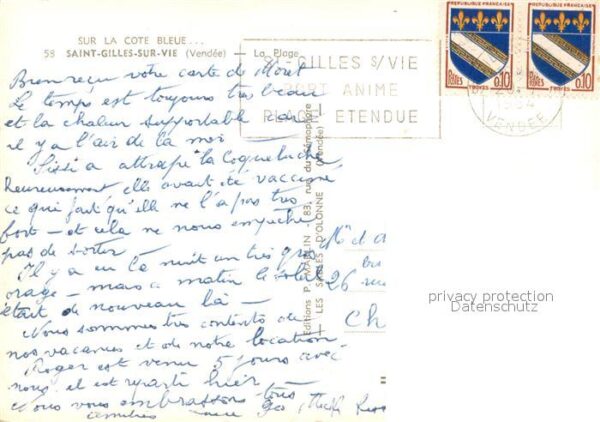 SUR LA COTE BLEUE...
58 SAINT-GILLES-SUR-VIE (Vendée) — La Plage
Bien reçu votre carte de Moret
Le temps est toujours très beau
et la chaleur supportable car
il y a l'air de la mer
Sissi a attrapé la coqueluche
heureusement elle avait été vaccinée
ce qui fait qu'elle ne l'a pas très
fort - et cela ne nous empêche
pas de sortir
Il y a eu la nuit un très gros
orage - mais ce matin le soleil
était de nouveau là -
Nous sommes très contents de
nos vacances et de notre location.
Roger est venu 5 jours avec
nous, il est reparti hier
Nous vous embrassons tous
Editions P. - 83, rue du
— LES SABLES D'OLONNE — (Vendée)
ST-GILLES S/VIE
PORT ANIME
PLAGE ETENDUE
VENDEE
REPUBLIQUE FRANÇAISE
POSTES 0,10
TROYES
REPUBLIQUE FRANÇAISE
POSTES 0,10
TROYES
26 rue
Ch
privacy protection
Datenschutz